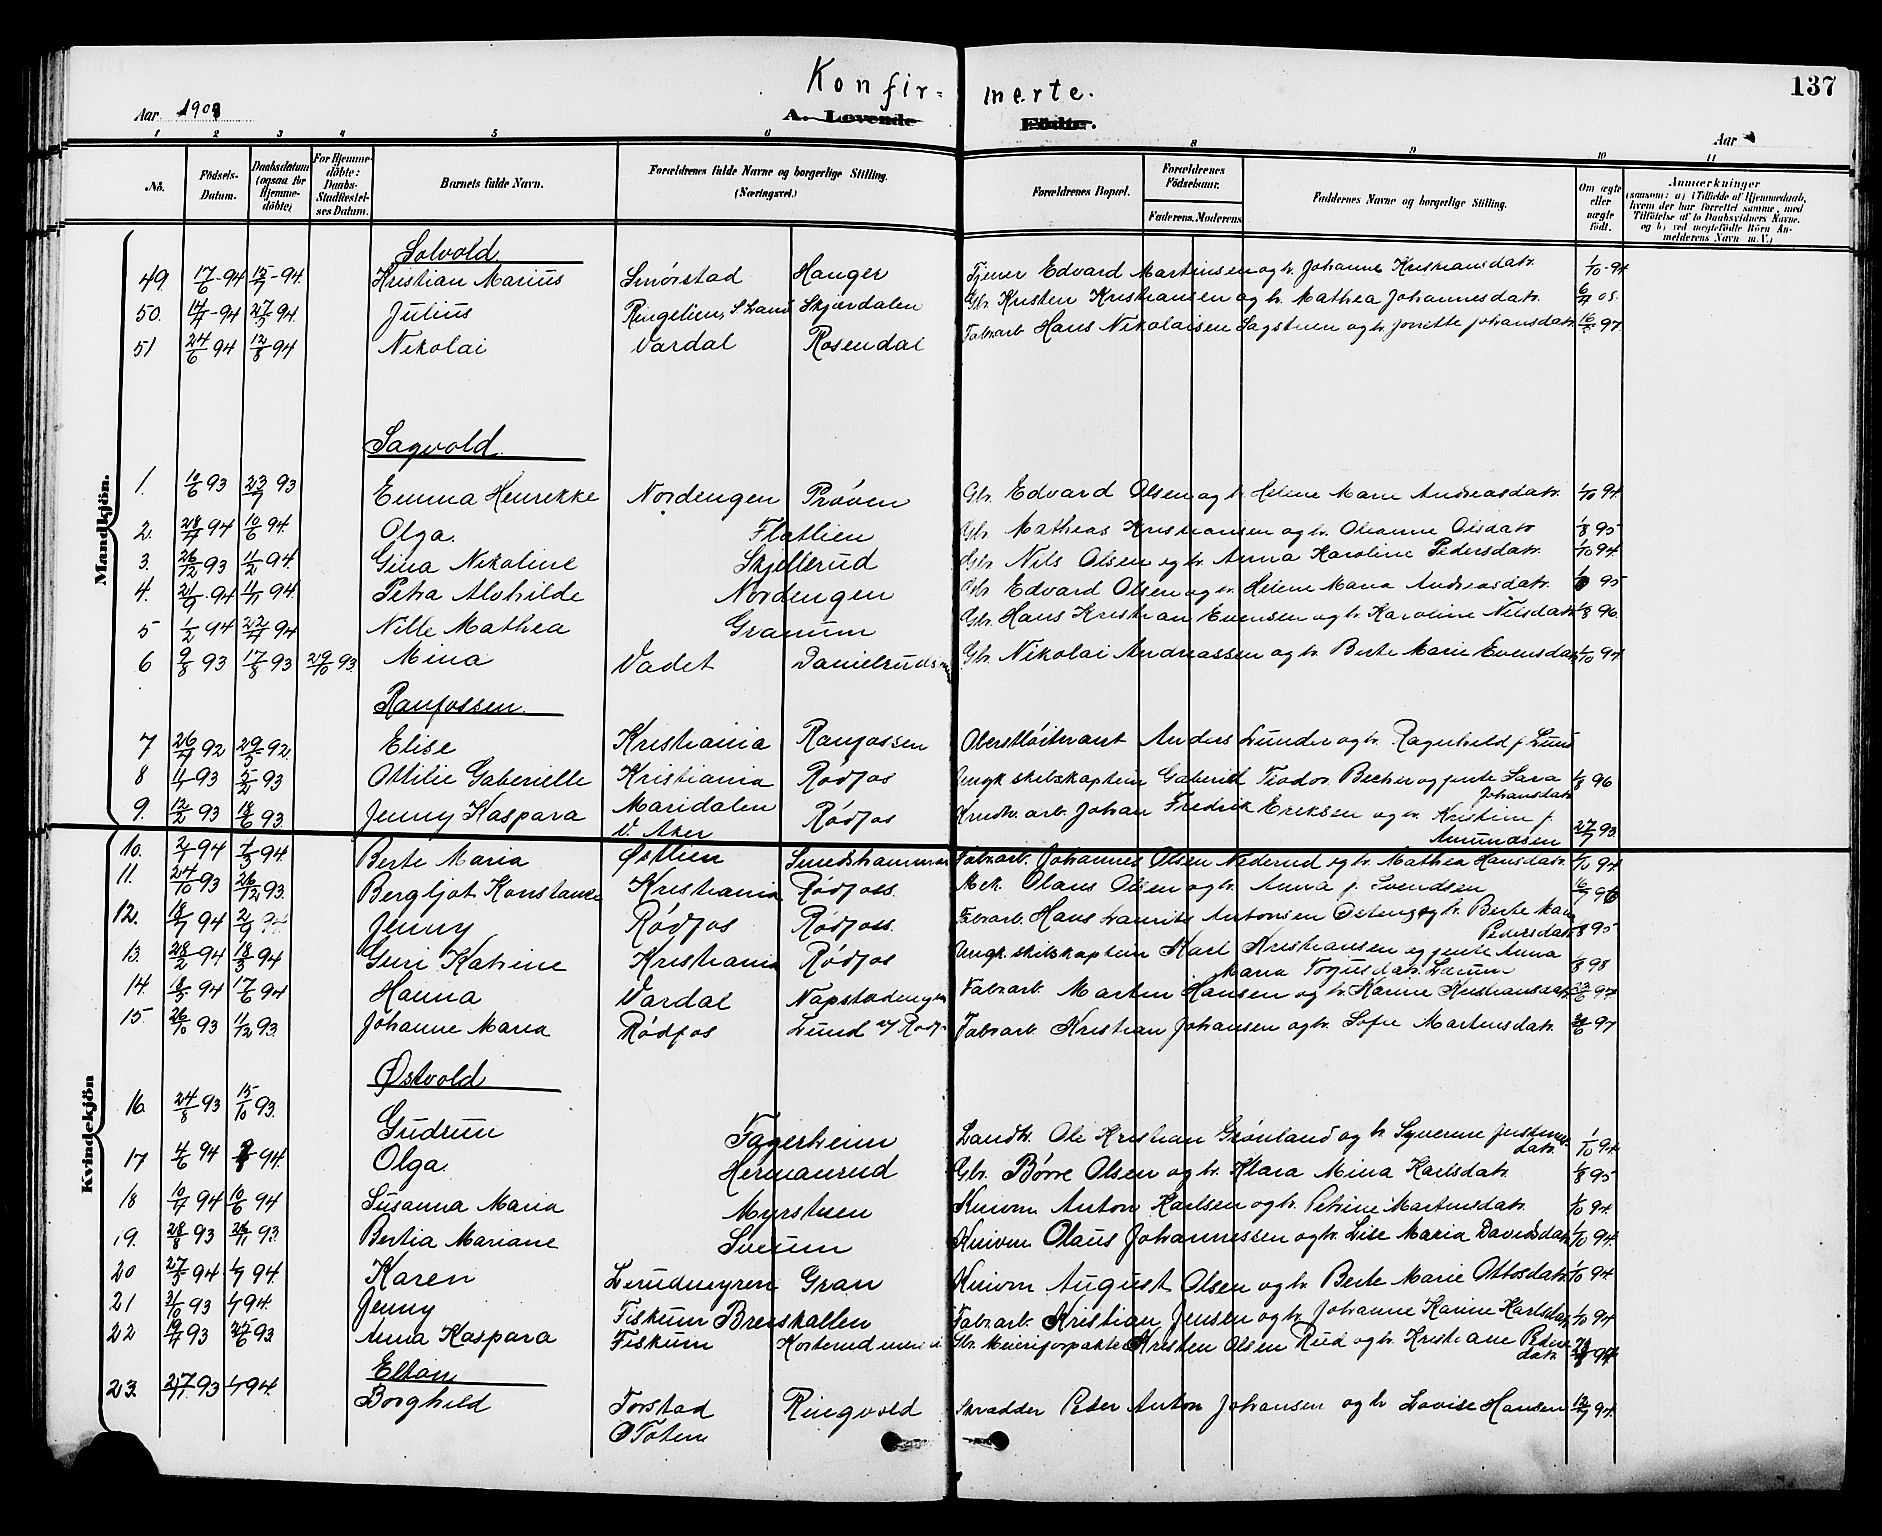 137
Konfir= merte.
Aar 1908
A. Levende Födte.
Aar
1 2 3 4 5 6 8 9 10 11
No. Födsels-Datum. Daabsdatum (ogsaa for Hjemmedöbte) For Hjemmedöbte: Daabs-Stadfæstelses Datum. Barnets fulde Navn. Forældrenes fulde Navne og borgerlige Stilling. (Næringsvei.) Forældrenes Bopæl. Forældrenes Födselsaar. Faderens. Moderens. Faddernes Navne og borgerlige Stilling. Om ægte eller uægte födt. Anmærkninger
Mandkjön.
Solvold
49 17/6-94 15/7-94 Kristian Marius Smørstad Hanger Tjener Edvard Martinsen og h. Johanne Kristiansdatr. 1/10-94
50. 14/4-94 27/5 94. Julius Ringelien, S. Land Skjørdalen Gbr. Kristen Kristiansen og h. Mathea Johannesdatr.
51 24/6 94 12/8 94 Nikolai Vardal Rosendal Fabrarb. Hans Nikolaisen Sagstuen og h. Jonette Johansdatr. 97
Sagvold.
1. 10/6 93 23/7 93 Emma Henrikke Nordengen Prøven Gbr. Edvard Olsen og h. Helene Marie Andreasdatr. 1/10 94
2. 28/4 94 10/6 94. Olga. Flatlien Gbr. Mathias Kristiansen og h. Oleanne Olsdatr 1/8 95
3. 26/12 93 11/2 94. Gina Nikoline Skjellerud Gbr. Nils Olsen og h. Anna Karoline Pedersdatr. 1/10 94
4. 21/9.94 11/11 94. Petra Alvhilde Nordengen Gbr. Edvard Olsen og h. Helene Maria Andreasdatr. 95
5 1/2 94 22/4 94 Nille Mathea Granum Gbr. Hans Kristian Evensen og h. Karoline Nilsdatr 1/8 96
6 9/8 93 17/8 93 29/10 93. Mina Vadet Gbr. Nikolai Andreassen og h. Berte Marie Evensdatr 1/10 94
Raufossen.
7 26/4 92 29/5 92. Elise Kristiania Raufossen Oberstløitenant Anders Lunder og h. Ragnhild f. Lund
8 4/1-93 5/2 93 Ottilie Gaberielle Kristiania Rødfos Gaberiel Teodor Becher og Sara Johansdatr 1/8 96
9. 12/2 93 18/6 93. Jenny Kaspara Maridalen V. Aker Rødfos Krudtv. arb. Johan Fredrik Eriksen og h. Kristine f. Amundsen 27/7 93
Kvindekjön
10. 2/1 94 7/5 94. Berte Maria Østlien Smedshammer Fabrarb. Johannes Olsen Nederud og h. Mathea Hansdatr. 1/10 94
11. 24/10 93 26/12 93. Bergljot Konstanse Kristiania Rødfoss. Mek. Olaus Olsen og h. Anna f. Svendsen
12. 18/7 94 2/9 94 Jenny Rødfos Rødfoss. Fabrarb. Hans Laurits Antonsen Østeng og h. Berte Mari Pedersdatr 1/8 95
13. 28/2 94 18/3 94 Guri Katrine Kristiania Rødfos Karl Kristiansen og Anna Maria 1/8 98
14. 18/5 94 17/6 94 Hanna Vardal Napstadengen Fabrarb. Martin Hansen og h. Karine Kristiansdatr
15. 26/10 93 11/12 93. Johanne Maria Rødfos Lund v/ Rødf. Fabrarb. Kristian Johansen og h. Sofie Martinsdatr. 97
Østvold
16. 24/8 93 15/10 93. Gudrun Fagerheim Landh. Ole Kristian Grønland og h. Syverine datr. 1/10 94
17 4/6 94 94. Olga. Hermanrud Gbr. Børre Olsen og h. Klara Mina Karlsdatr. 1/8 95
18 10/4 94 10/6 94 Susanna Maria Myrstuen Anton Karlsen og h. Petrine Martinsdatr. 1/10 94.
19. 28/8 93 26/11 93. Bertia Mariane Sveum Olaus Johannessen og h. Lise Maria Davidsdatr 1/10 94.
20 27/5 94 1/7 94. Karen Gran August Olsen og h. Berte Marie Ottosdatr. 1/10 94
21 31/10 93 1/1 94. Jenny Fiskum Brenskallen Fabrarb. Kristian Jensen og h. Johanne Karine Karlsdatr 1/10 94
22 19/4 93 25/6 93 Anna Kaspara Fiskum Gbr. Meieriforpakter Kristen Olsen Rud og h. Kristiane Peders datr. 94
Eltan
23. 27/11.93 1/1 94. Borghild Torstad Ø Toten Ringvold Skrædder Peder Anton Johansen og h. Lovise Hansen 12/7 94.